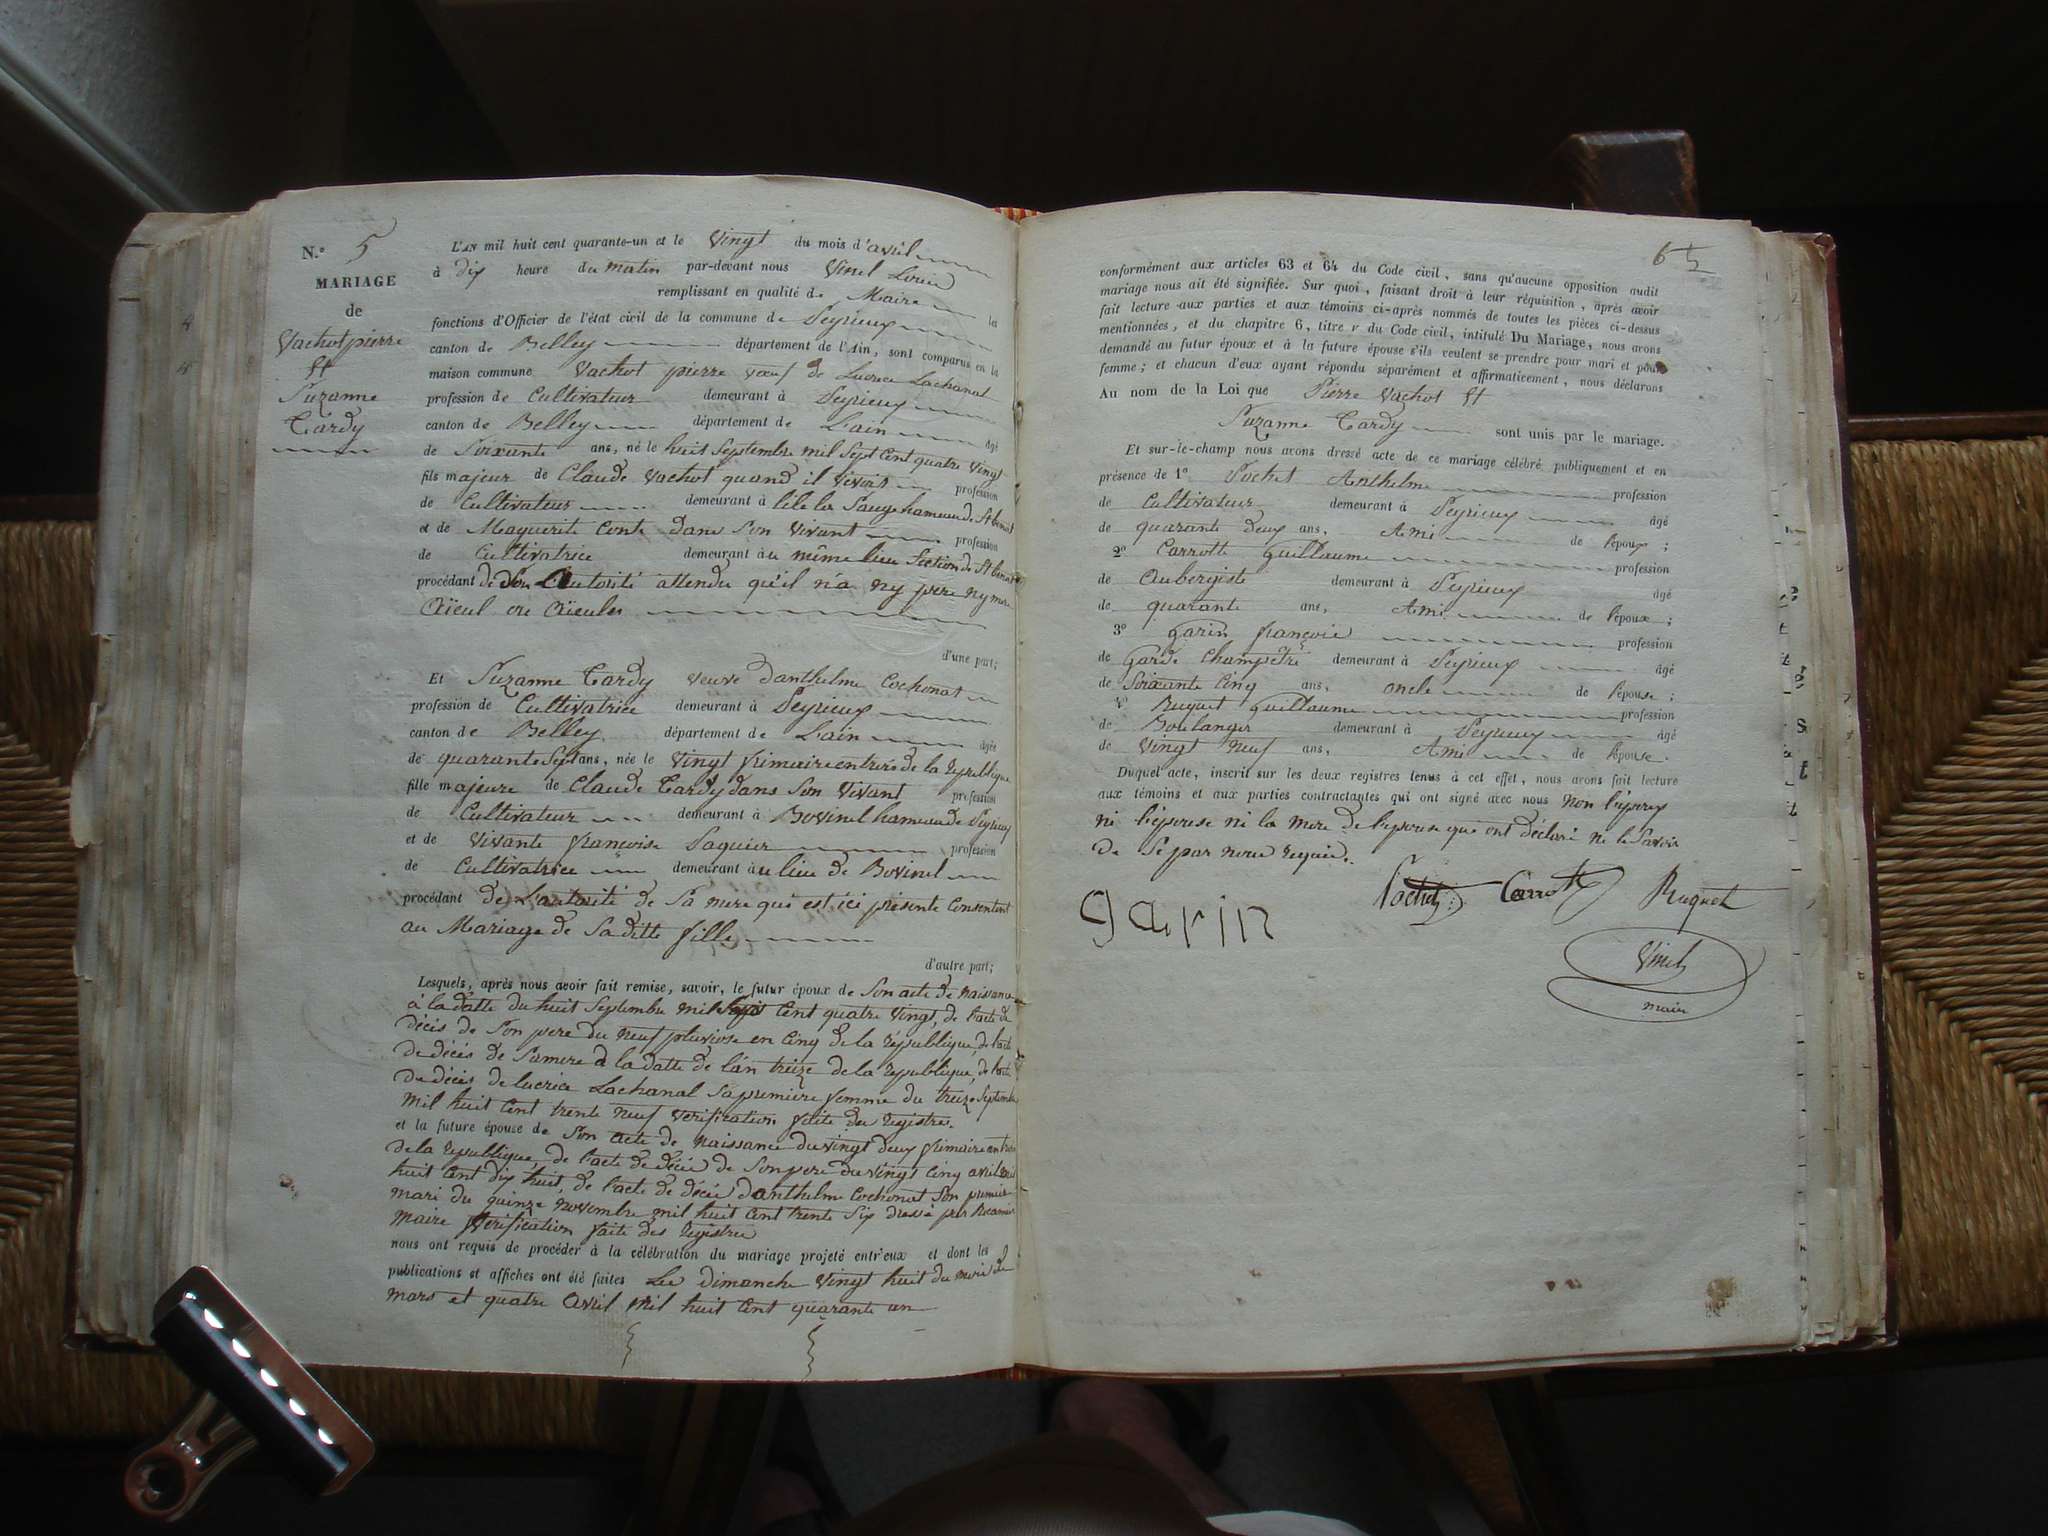 N.º 5
MARIAGE
de
Vachot pierre
et
Suzanne
Tardy
L'AN mil huit cent quarante-un et le Vingt du mois d'avril
à dix heure du matin par-devant nous Vinel Louis
remplissant en qualité de Maire les
fonctions d'Officier de l'état civil de la commune de Peyrieux
canton de Belley département de l'Ain, sont comparus en la
maison commune Vachot pierre vœuf de Lucrece Lachanal
profession de Cultivateur demeurant à Peyrieux
canton de Belley département de L'ain âgé
de Soixante ans, né le huit Septembre mil Sept Cent quatre Vingt
fils majeur de Claude Vachot quand il vivoit profession
de Cultivateur demeurant à hameau de St benoit
et de Maguerit Conte dans Son Vivant profession
de Cultivatrice demeurant au même lieu Section de St benoit
procédant de Son Autorité attendu qu'il n'a ny pere ny mere
Aïeul ou Aïeules
d'une part;
Et Suzanne Tardy veuve d'anthelme Cochonat
profession de Cultivatrice demeurant à Peyrieux
canton de Belley département de L'ain âgée
de quarante Sept ans, née le Vingt frimaire an trois de la république
fille majeure de Claude Tardy dans Son Vivant profession
de Cultivateur demeurant à Bovinel hameau de Peyrieux
et de Vivante françoise Paquier profession
de Cultivatrice demeurant au lieu de Bovinel
procédant de L'autorité de Sa mere qui est ici présente Consentent
au Mariage de Sa ditte fille
d'autre part;
Lesquels, après nous avoir fait remise, savoir, le futur époux de Son acte de Naissance
à la datte du huit Septembre mil Sept Cent quatre Vingt, de l'acte de
décès de Son pere du Neuf pluviose en Cinq de la république, de l'acte
de décès de Sa mere à la datte de l'an treize de la république, de l'acte
de décès de lucrice Lachanal Sa premiere femme du treize Septembre
mil huit Cent trente neuf verification faite du registre.
et la future épouse de Son acte de Naissance du vingt deux frimaire an trois
de la république, de l'acte de décès de Son pere du Vingt Cinq avril mil
huit Cent dix huit, de l'acte de décès d'anthelme Cochonat Son premier
mari du quinze Novembre mil huit Cent trente Six dressé par
Maire Vérification faite des registres
nous ont requis de procéder à la célébration du mariage projeté entr'eux et dont les
publications et affiches ont été faites Les dimanche Vingt huit du mois de
mars et quatre avril Mil huit Cent quarante un
conformément aux articles 63 et 64 du Code civil, sans qu'aucune opposition audit
mariage nous ait été signifiée. Sur quoi, faisant droit à leur réquisition, après avoir
fait lecture aux parties et aux témoins ci-après nommés de toutes les pièces ci-dessus
mentionnées, et du chapitre 6, titre v du Code civil, intitulé Du Mariage, nous avons
demandé au futur époux et à la future épouse s'ils veulent se prendre pour mari et pour
femme; et chacun d'eux ayant répondu séparément et affirmativement, nous déclarons
Au nom de la Loi que Pierre Vachot et
Suzanne Tardy sont unis par le mariage.
Et sur-le-champ nous avons dressé acte de ce mariage célébré publiquement et en
présence de 1º Pochet Anthelme profession
de Cultivateur demeurant à Peyrieux âgé
de quarante deux ans, Ami de l'époux;
2º Carrotte Guillaume profession
de Aubergiste demeurant à Peyrieux âgé
de quarante ans, Ami de l'époux;
3º Garin françois profession
de Garde Champêtre demeurant à Peyrieux âgé
de Soixante Cinq ans, oncle de l'épouse;
4º Ruquet Guillaume profession
de Boulanger demeurant à Peyrieux âgé
de Vingt Neuf ans, Ami de l'épouse.
Duquel acte, inscrit sur les deux registres tenus à cet effet, nous avons fait lecture
aux témoins et aux parties contractantes qui ont signé avec nous non l'époux
ni l'épouse ni la mere de l'épouse qui ont déclaré ne le Savoir
de Se par nous requis.
Pochet Carrotte Ruquet
garin
Vinel
maire